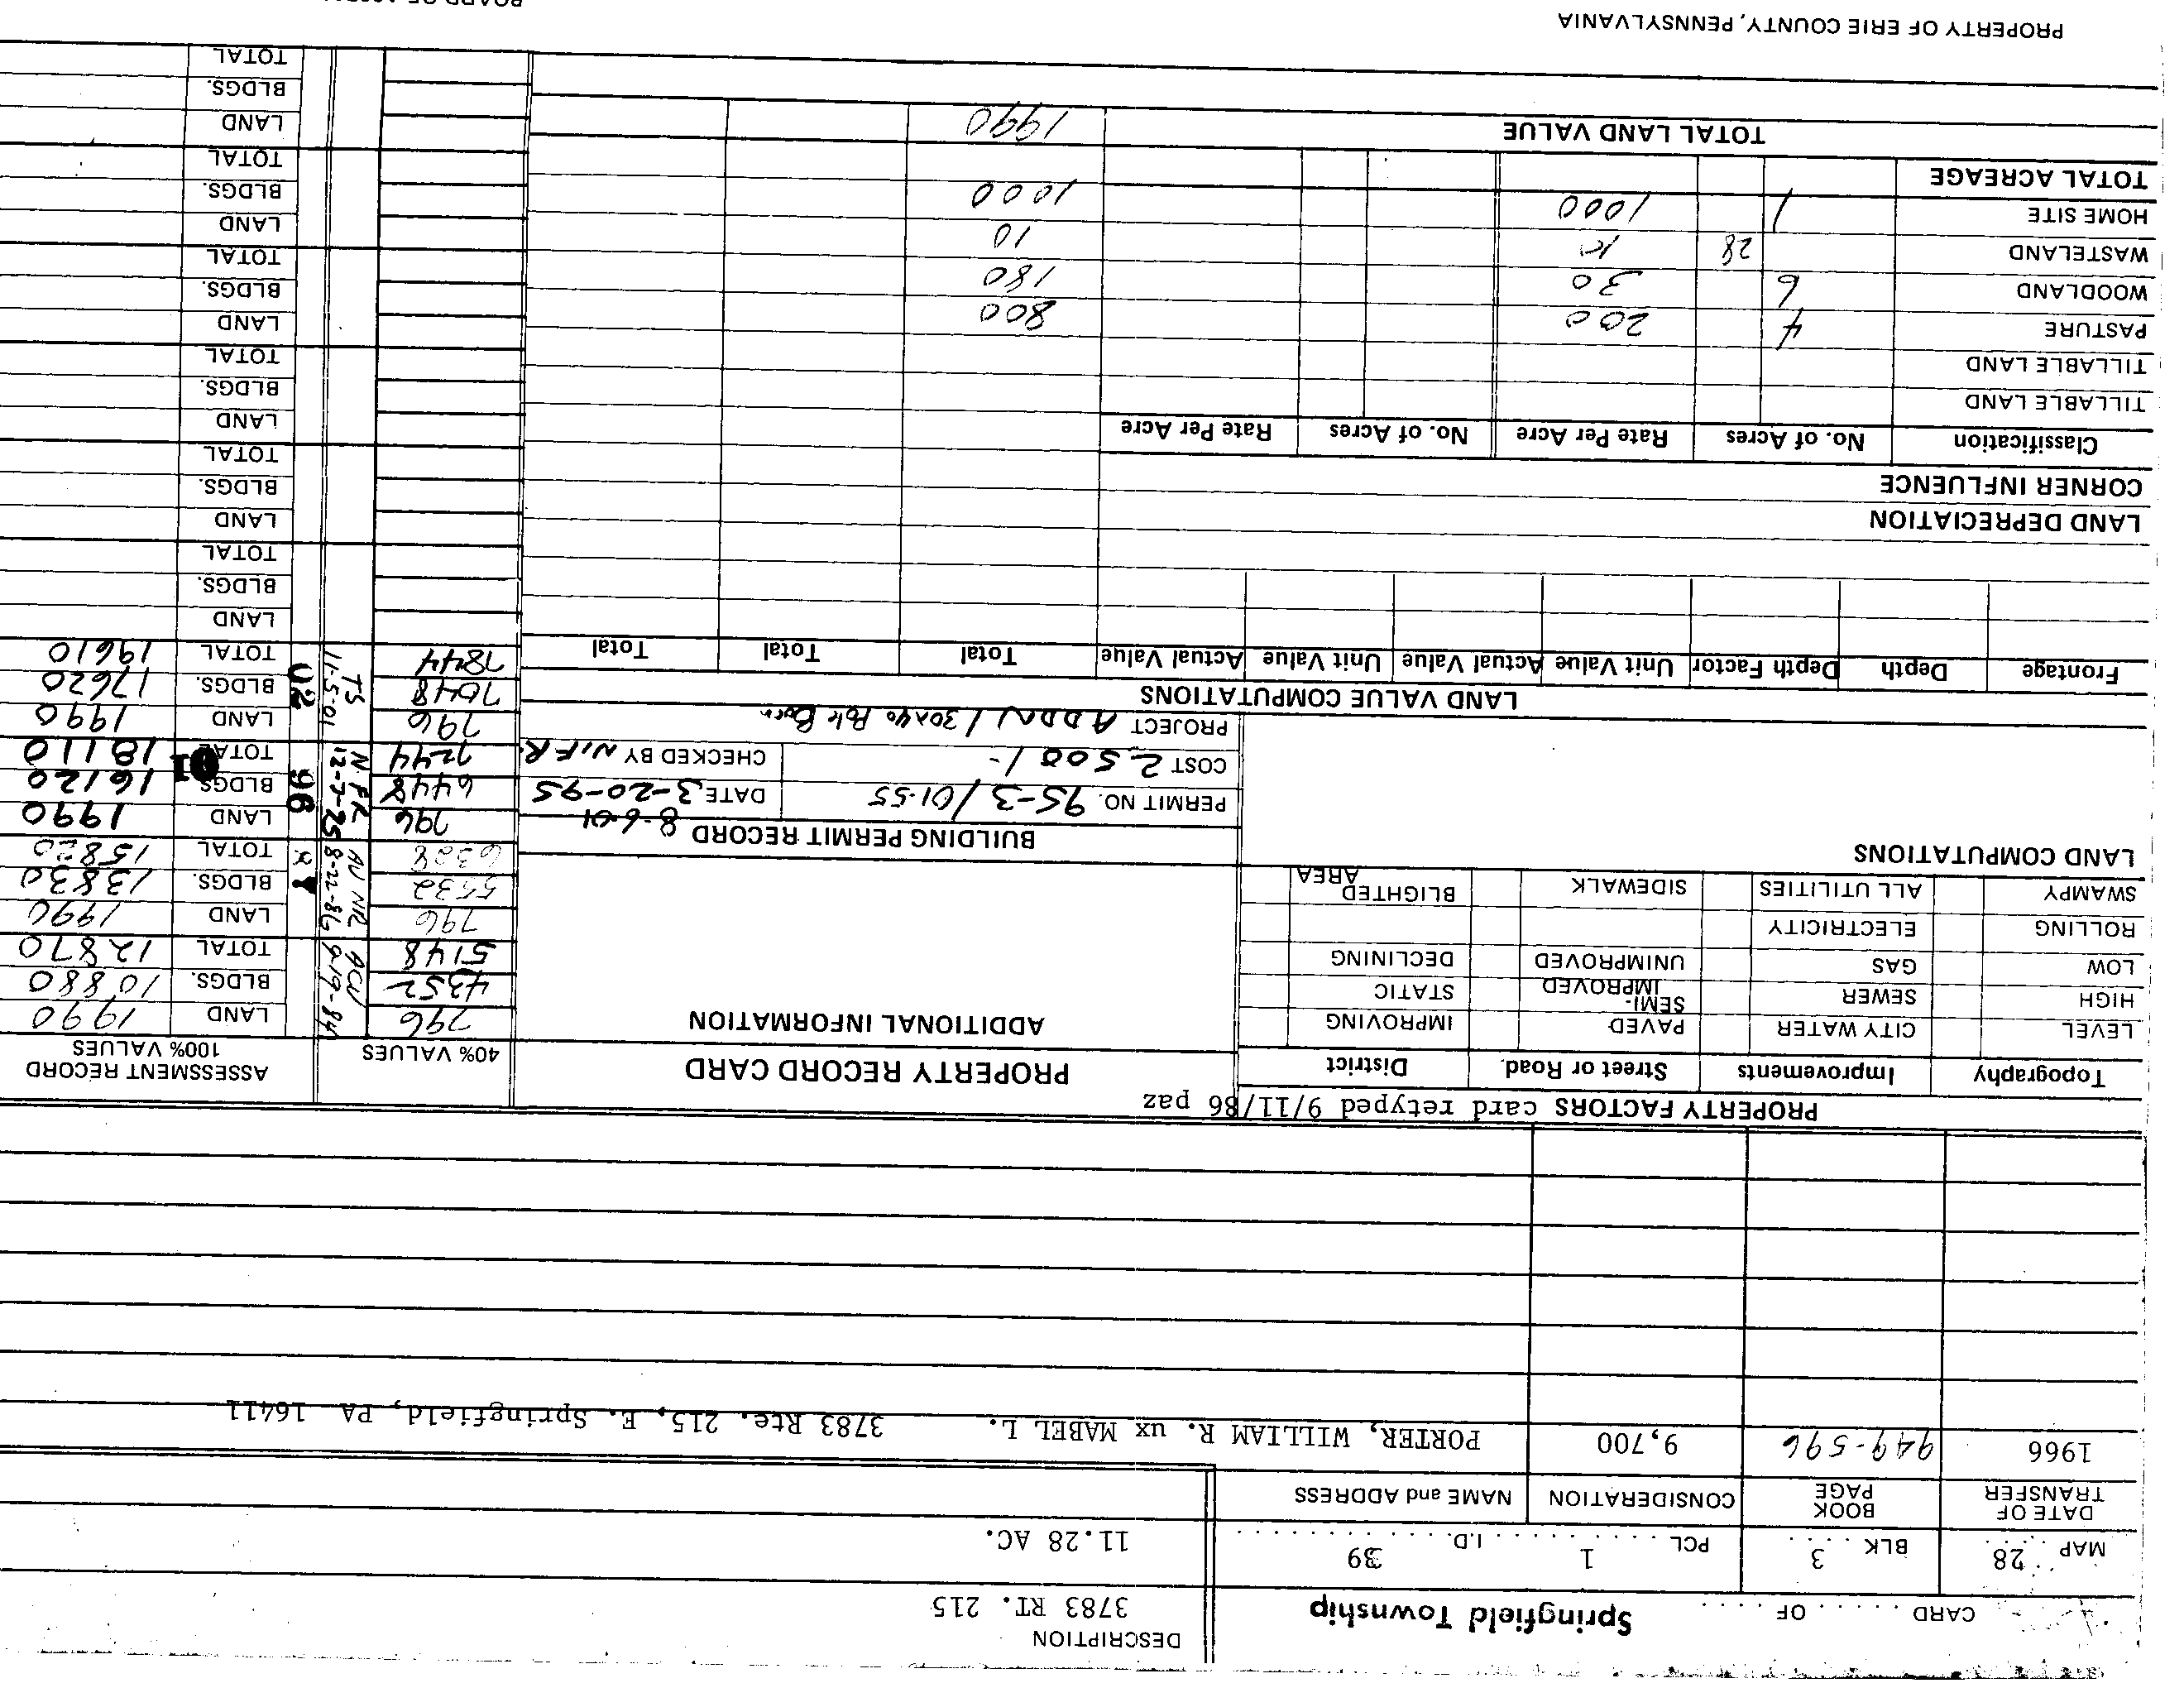 DESCRIPTION
CARD ...... OF ....
Springfield Township
3783 RT. 215
MAP 28 BLK 3 PCL 1 I.D. 39
11.28 AC.
DATE OF TRANSFER BOOK PAGE CONSIDERATION NAME and ADDRESS
1966 949-596 9,700 PORTER, WILLIAM R. ux MABEL L. 3783 Rte. 215, E. Springfield, PA 16411
PROPERTY FACTORS card retyped 9/11/86 paz
Topography Improvements Street or Road District
PROPERTY RECORD CARD
40% VALUES
ASSESSMENT RECORD
100% VALUES
LEVEL CITY WATER PAVED IMPROVING
HIGH SEWER SEMI-IMPROVED STATIC
LOW GAS UNIMPROVED DECLINING
ROLLING ELECTRICITY
SWAMPY ALL UTILITIES SIDEWALK BLIGHTED AREA
ADDITIONAL INFORMATION
LAND COMPUTATIONS
BUILDING PERMIT RECORD 8-6-01
PERMIT NO. 95-3 / 01-55 DATE 3-20-95
COST 2500 / - CHECKED BY N.F.R.
PROJECT ADDN / 30x40 Pole Barn
796 ACW 9-19-84 LAND 1990
4352 BLDGS. 10880
5148 TOTAL 12870
796 8-22-86 LAND 1990
5532 BLDGS. 13830
6328 TOTAL 15820
796 N.F.R. 96 LAND 1990
6448 BLDGS. 16120
7244 TOTAL 18110 01
796 TS 11-5-01 02 LAND 1990
7048 BLDGS. 17620
7844 TOTAL 19610
LAND VALUE COMPUTATIONS
Frontage Depth Depth Factor Unit Value Actual Value Unit Value Actual Value Total Total Total
LAND
BLDGS.
TOTAL
LAND DEPRECIATION
CORNER INFLUENCE
LAND
BLDGS.
TOTAL
Classification No. of Acres Rate Per Acre No. of Acres Rate Per Acre
TILLABLE LAND
TILLABLE LAND
PASTURE 4 200 800
WOODLAND 6 30 180
WASTELAND 28 10 10
HOME SITE 1 1000 1000
TOTAL ACREAGE
TOTAL LAND VALUE 1990
LAND
BLDGS.
TOTAL
LAND
BLDGS.
TOTAL
LAND
BLDGS.
TOTAL
LAND
BLDGS.
TOTAL
PROPERTY OF ERIE COUNTY, PENNSYLVANIA
BOARD OF